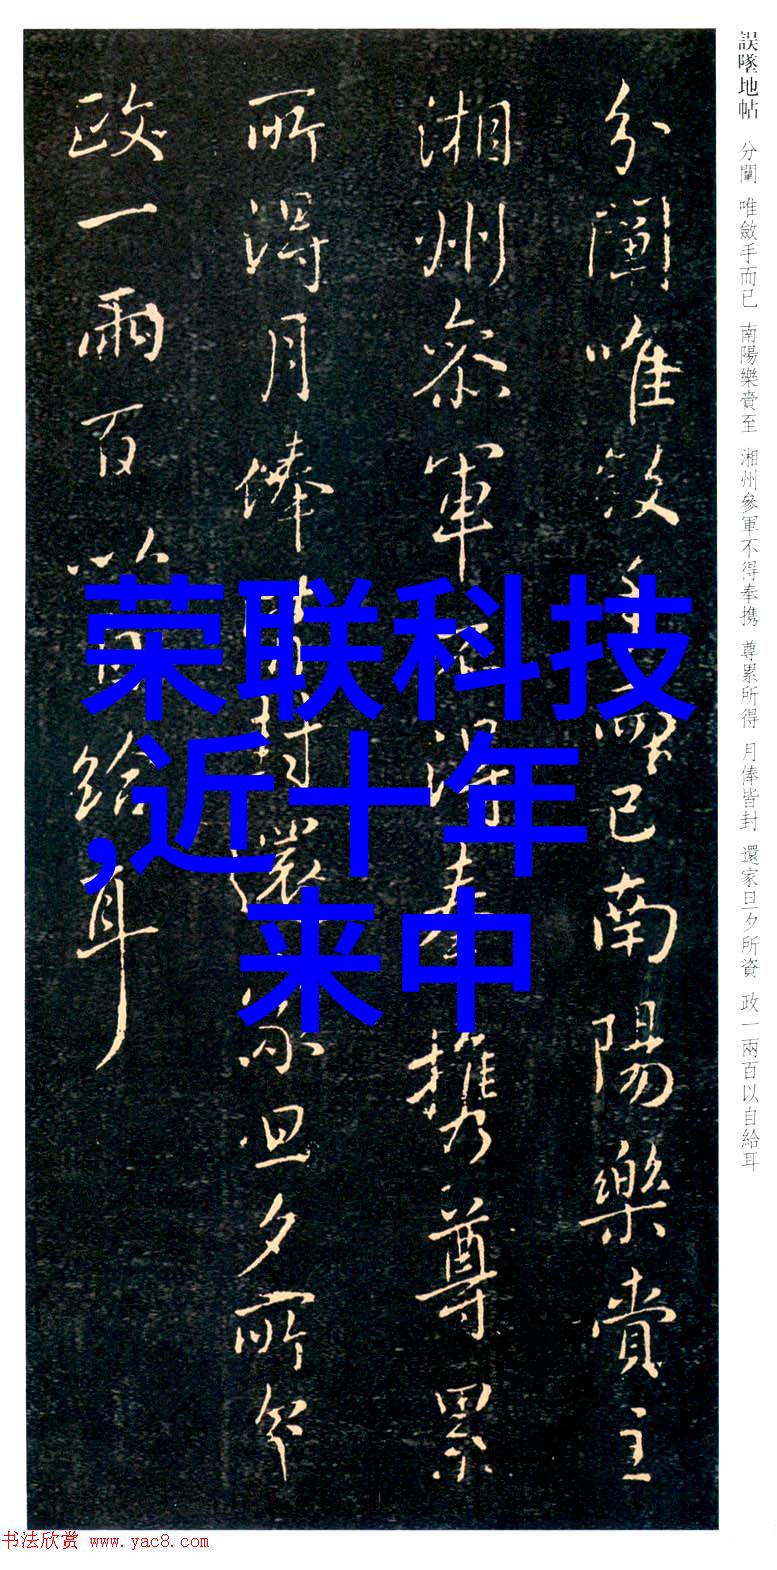 誤墜地帖 分闡 唯斂手而已 南陽樂賫至 湘州參軍不得奉携 尊累所得 月俸皆封 還家旦夕所資 政一兩百以自給耳
分闡唯斂手而已南陽樂賫至
湘州參軍不得奉携尊累
所得月俸皆封還家旦夕所資
政一兩百以自給耳
荣联科技
,近十年
来中
书法欣赏 www.yac8.com